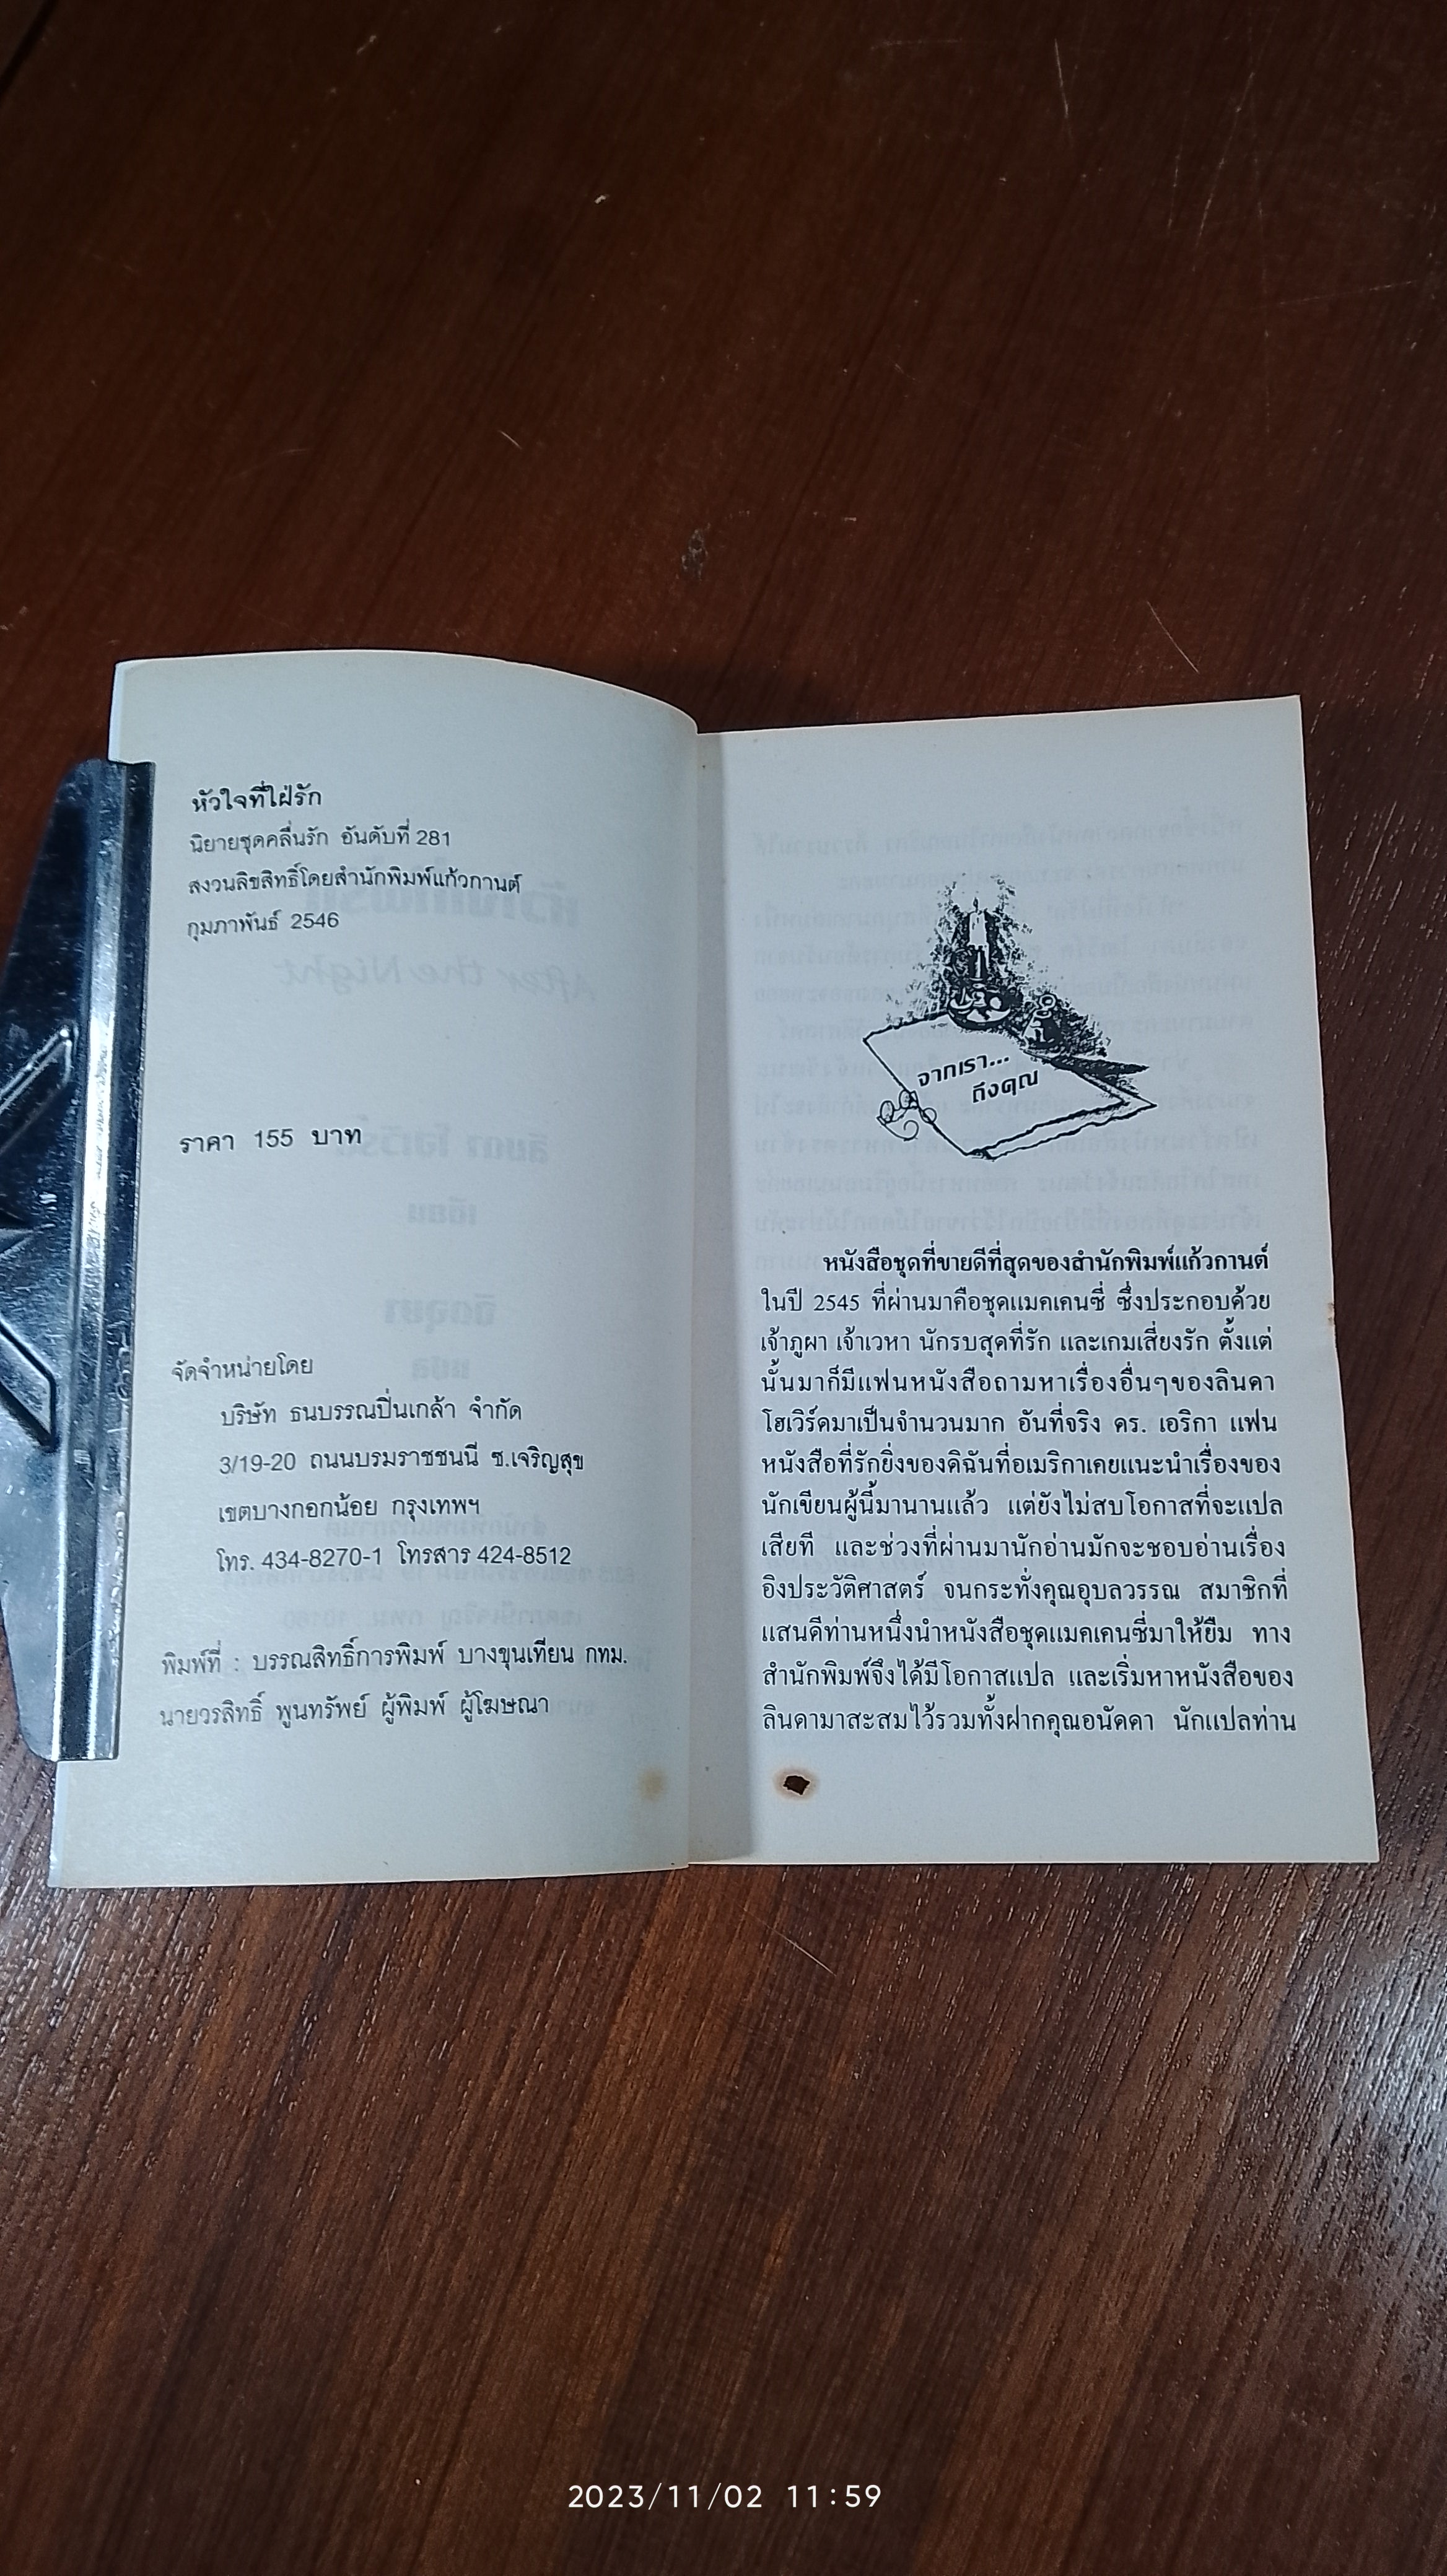 หัวใจที่ใฝ่รัก
นิยายชุดคลื่นรัก อันดับที่ 281
สงวนลิขสิทธิ์โดยสำนักพิมพ์แก้วกานต์
กุมภาพันธ์ 2546
ราคา 155 บาท
จัดจำหน่ายโดย
บริษัท ธนบรรณปิ่นเกล้า จำกัด
3/19-20 ถนนบรมราชชนนี ซ.เจริญสุข
เขตบางกอกน้อย กรุงเทพฯ
โทร. 434-8270-1 โทรสาร 424-8512
พิมพ์ที่ : บรรณสิทธิ์การพิมพ์ บางขุนเทียน กทม.
นายวรสิทธิ์ พูนทรัพย์ ผู้พิมพ์ ผู้โฆษณา
จากเรา...
ถึงคุณ
หนังสือชุดที่ขายดีที่สุดของสำนักพิมพ์แก้วกานต์
ในปี 2545 ที่ผ่านมาคือชุดแมคเคนซี่ ซึ่งประกอบด้วย
เจ้าภูผา เจ้าเวหา นักรบสุดที่รัก และเกมเสี่ยงรัก ตั้งแต่
นั้นมาก็มีแฟนหนังสือถามหาเรื่องอื่นๆของลินดา
โฮเวิร์ดมาเป็นจำนวนมาก อันที่จริง ดร. เอริกา แฟน
หนังสือที่รักยิ่งของดิฉันที่อเมริกาเคยแนะนำเรื่องของ
นักเขียนผู้นี้มานานแล้ว แต่ยังไม่สบโอกาสที่จะแปล
เสียที และช่วงที่ผ่านมานักอ่านมักจะชอบอ่านเรื่อง
อิงประวัติศาสตร์ จนกระทั่งคุณอุบลวรรณ สมาชิกที่
แสนดีท่านหนึ่งนำหนังสือชุดแมคเคนซี่มาให้ยืม ทาง
สำนักพิมพ์จึงได้มีโอกาสแปล และเริ่มหาหนังสือของ
ลินดามาสะสมไว้รวมทั้งฝากคุณอนัดดา นักแปลท่าน
2023/11/02 11:59